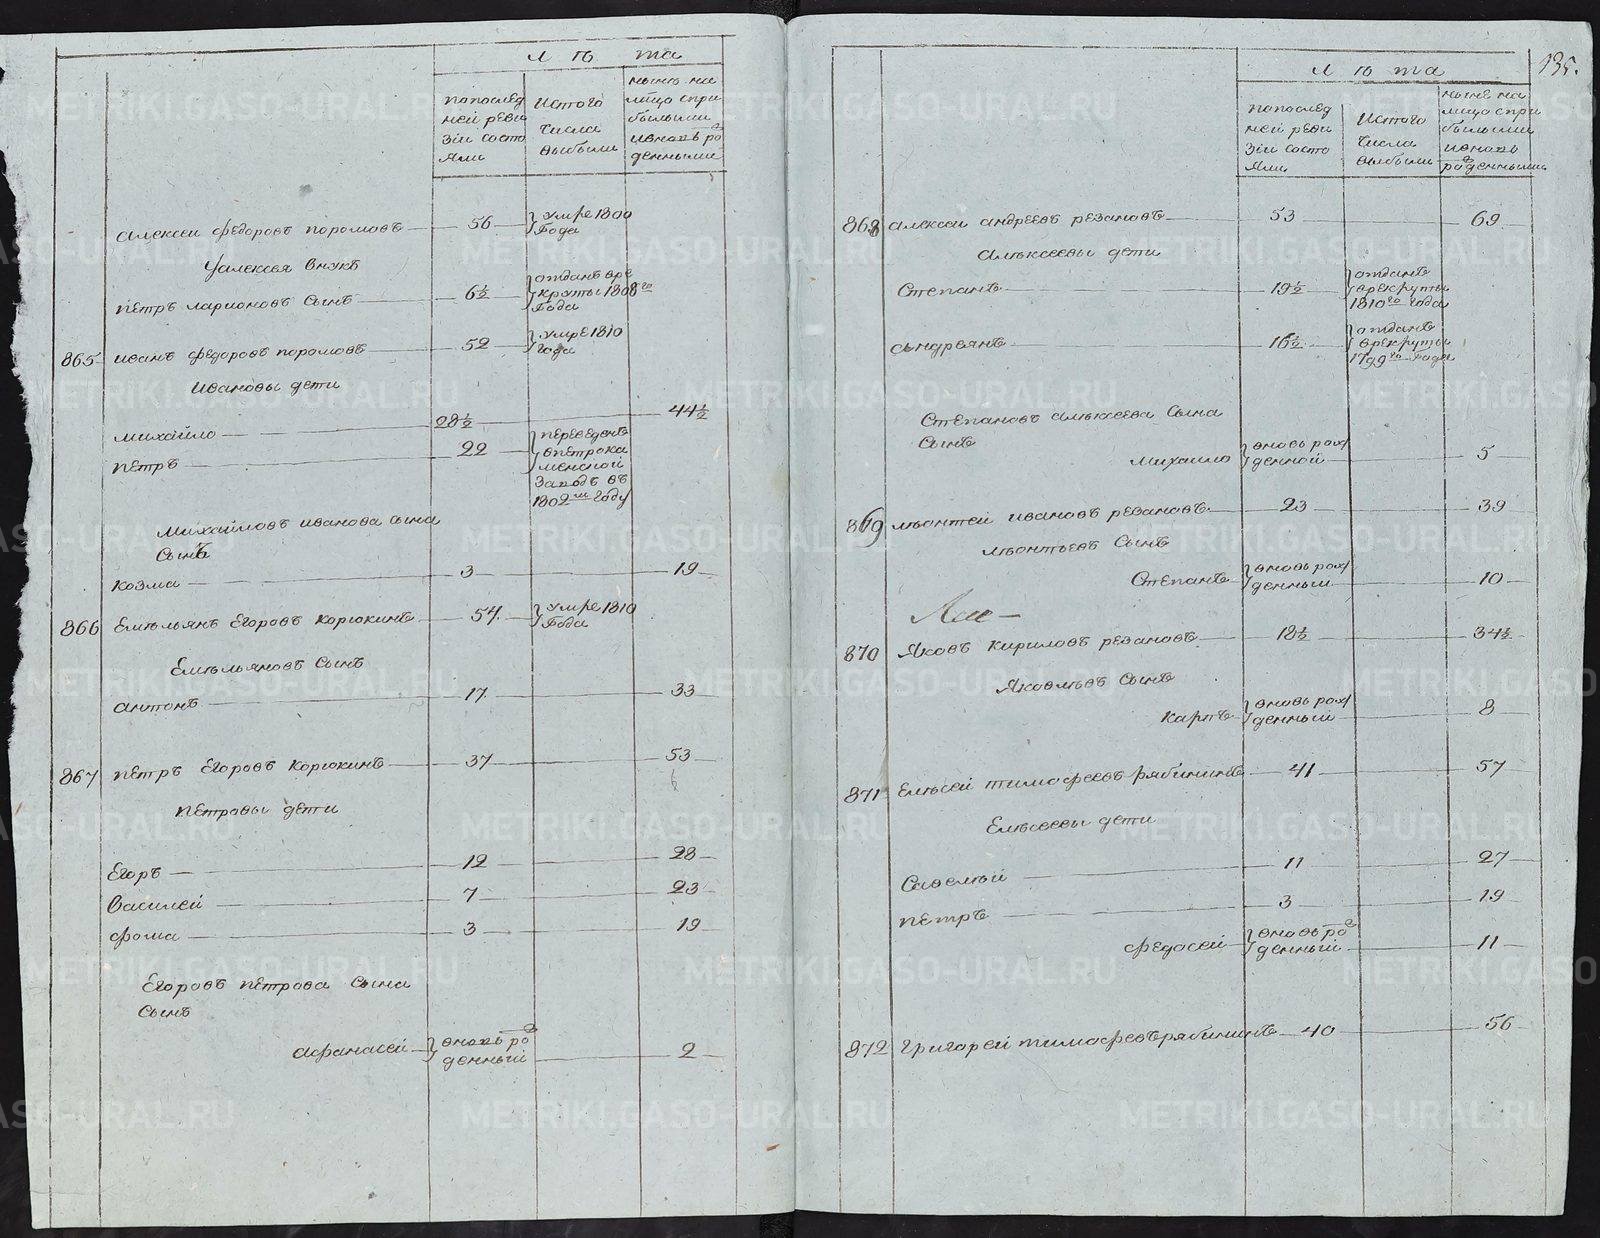 лѣта
по послед
ней реви
зіи состо
яли
Изтого
числа
выбыли
нынѣ на
лицо спри
былыми
ивновь ро
денными
Алексеи федоровъ поромовъ 56 умре 1800
Года
Уалексея внукъ
петръ ларионовъ сынъ 6½ отданъ вре
круты 1808го
Года
865 иванъ федоровъ поромовъ 52 умре 1810
года
Ивановы дети
михайло 28½ 44½
петръ 22 переведенъ
впетрока
менской
Заводъ въ
1802м году
михайловъ иванова сына
сынъ
козма 3 19
866 Емельянъ Егоровъ корюкинъ 54 умре 1810
Года
Емельяновъ сынъ
антонъ 17 33
867 петръ Егоровъ корюкинъ 37 53
петровы дети
Егоръ 12 28
василей 7 23
фома 3 19
Егоровъ петрова сына
сынъ
афанасей вновь ро
денный 2
135.
лѣта
по послед
ней реви
зіи состо
яли
Изтого
числа
выбыли
ныне на
лицо спри
былыми
ивновь
роденными
868 алексеи андреевъ резановъ 53 69
Алексеевы дети
Степанъ 19½ отданъ
врекруты
1810го года
андреянъ 16½ отданъ
врекруты
1799го Года
Степановъ алексеева сына
сынъ
михаило вновь рож
денной 5
869 леонтей ивановъ резановъ 23 39
леонтьевъ сынъ
Степанъ вновь рож
денный 10
870 Яковъ кириловъ резановъ 18½ 34½
Яковлевъ сынъ
карпъ вновь рож
денный 8
871 Елисей тимофеевъ рябининъ 41 57
Елисеевы дети
Савелей 11 27
петръ 3 19
федосей вновь ро
денный 11
872 Григорей тимофеевъ рябининъ 40 56
METRIKI.GASO-URAL.RU